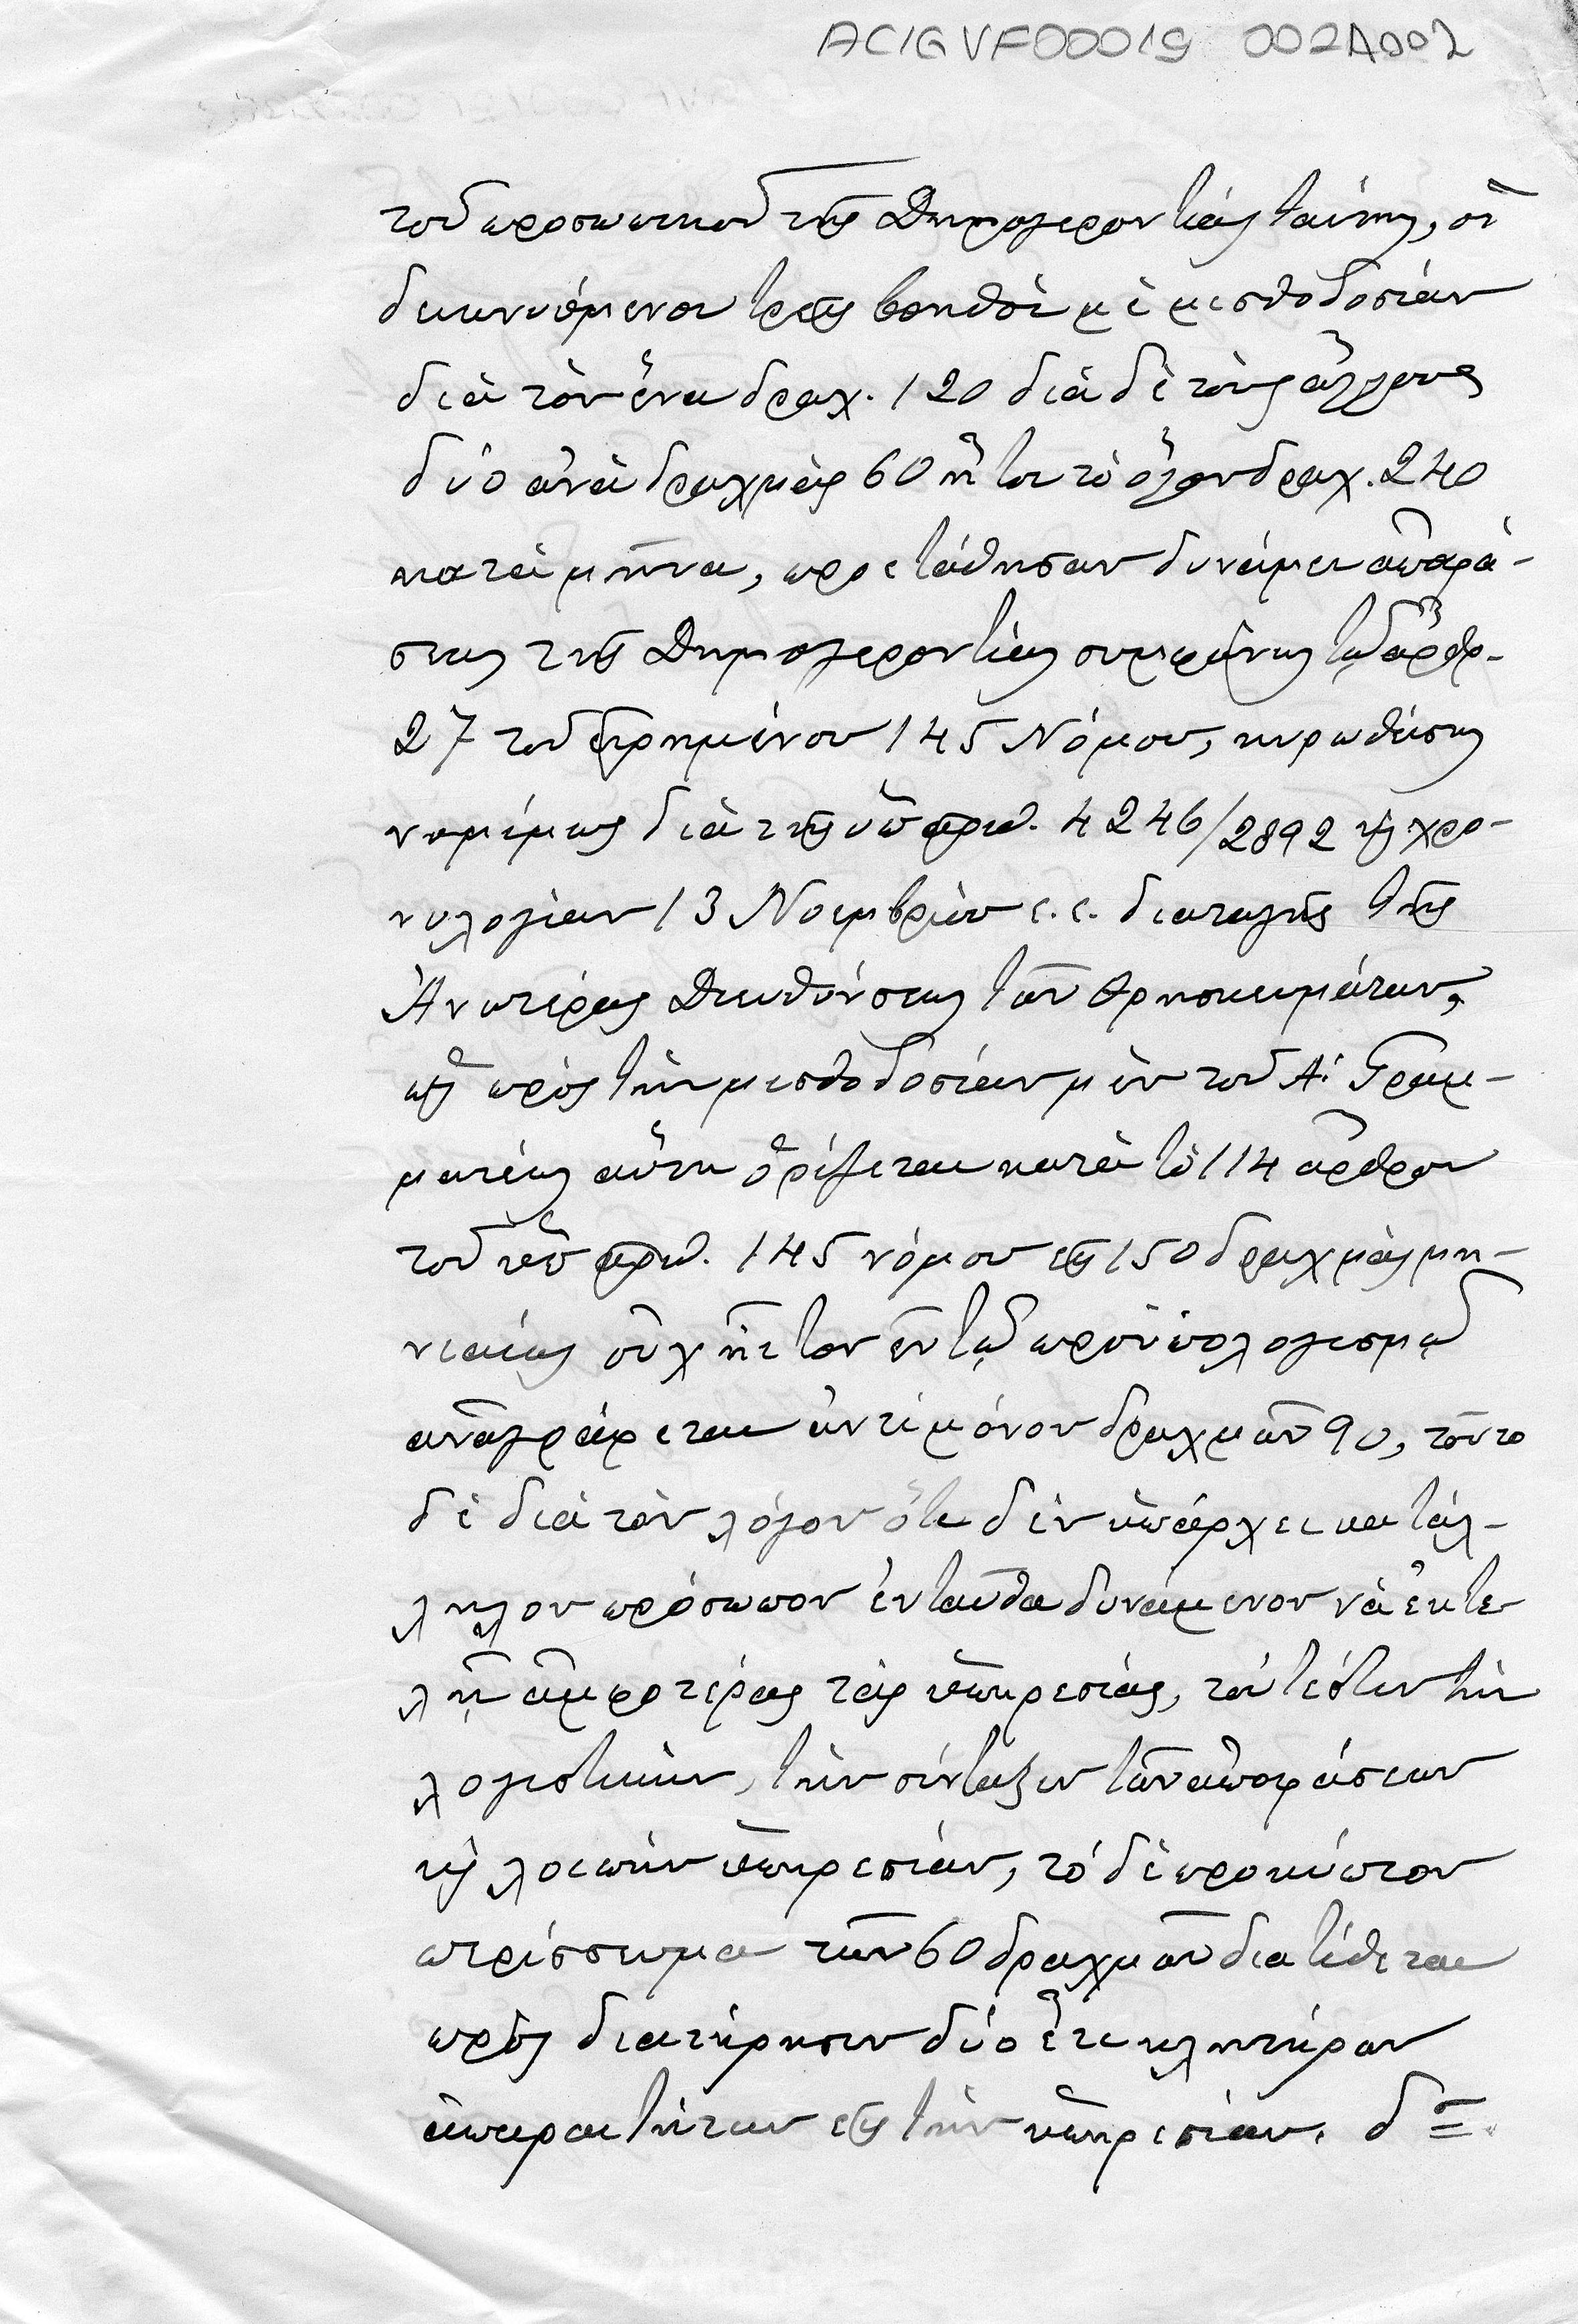 ACIGVF00019 002A002
τοῦ προσωπικοῦ τῆς Δημογεροντίας ταύτης, οἱ
δεικνυόμενοι τρεῖς βοηθοὶ μὲ μισθοδοσίαν
διὰ τὸν ἕνα δραχ. 120 διὰ δὲ τοὺς ἄλλους
δύο ἀνὰ δραχμὰς 60 ἤτοι τὸ ὅλον δραχ. 240
κατὰ μῆνα, προσετέθησαν δυνάμει ἀποφά-
σεως τῆς Δημογεροντίας συμφώνως τῷ ἄρθρ.
27 τοῦ εἰρημένου 145 Νόμου, κυρωθείσης
νομίμως διὰ τῆς ὑπ' ἀριθ. 4246/2892 καὶ χρο-
νολογίαν 13 Νοεμβρίου ἐ.ἔ. διαταγῆς τῆς
Ἀνωτέρας Διευθύνσεως τῶν Θρησκευμάτων,
ὡς πρὸς τὴν μισθοδοσίαν μὲν τοῦ Α' Γραμ-
ματέως αὕτη ὁρίζεται κατὰ τὸ 114 ἄρθρον
τοῦ ὑπ' ἀριθ. 145 νόμου εἰς 150 δραχμὰς μη-
νιαίως οὐχ ἧττον ἐν τῷ προϋπολογισμῷ
ἀναγράφεται ἀντιμόνον δραχμῶν 90, τοῦτο
δὲ διὰ τὸν λόγον ὅτι δὲν ὑπάρχει κατάλ-
ληλον πρόσωπον ἐνταῦθα δυνάμενον νὰ ἐκτε
λῇ ἀμφοτέρας τὰς ὑπηρεσίας, τουτέστιν τὴν
λογιστικὴν, τὴν σύνταξιν τῶν ἀποφάσεων
καὶ λοιπὴν ὑπηρεσίαν, τὸ δὲ προκύπτον
περίσσευμα τῶν 60 δραχμῶν διατίθεται
πρὸς διατήρησιν δύο ἔτι κλητήρων
ἀπαραιτήτων εἰς τὴν ὑπηρεσίαν. δ=